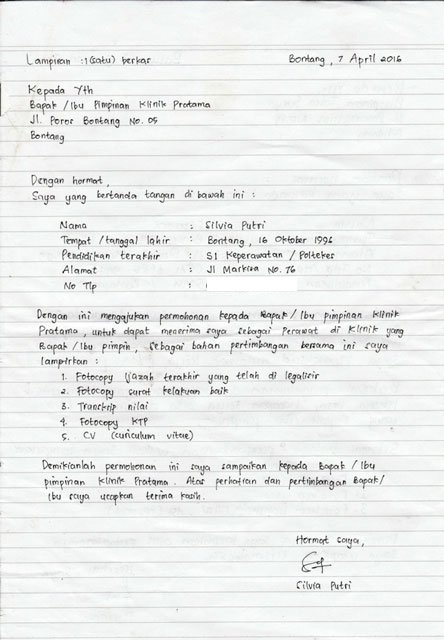 Lampiran : 1 (satu) berkas
Bontang, 7 April 2016
Kepada Yth
Bapak / Ibu Pimpinan Klinik Pratama
Jl. Poros Bontang No. 05
Bontang
Dengan hormat,
Saya yang bertanda tangan di bawah ini :
Nama : Silvia Putri
Tempat / tanggal lahir : Bontang, 16 Oktober 1996
Pendidikan terakhir : S1 Keperawatan / Poltekes
Alamat : Jl Markisa No. 76
No Tlp :
Dengan ini mengajukan permohonan kepada Bapak / Ibu pimpinan Klinik
Pratama, untuk dapat menerima saya sebagai Perawat di Klinik yang
Bapak / Ibu pimpin, sebagai bahan pertimbangan bersama ini saya
lampirkan :
1. Fotocopy Ijazah terakhir yang telah di legalisir
2. Fotocopy surat kelakuan baik
3. Transkrip nilai
4. Fotocopy KTP
5. CV (curiculum vitae)
Demikianlah permohonan ini saya sampaikan kepada Bapak / Ibu
pimpinan Klinik Pratama. Atas perhatian dan pertimbangan Bapak /
Ibu saya ucapkan terima kasih.
Hormat saya,
Silvia Putri